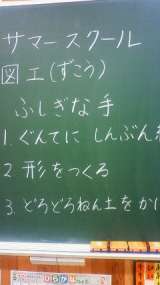 サマースクール
図工(ずこう)
ふしぎな手
1.ぐんてに しんぶん
2 形をつくる
3.どろどろねん土をか
ひらがな